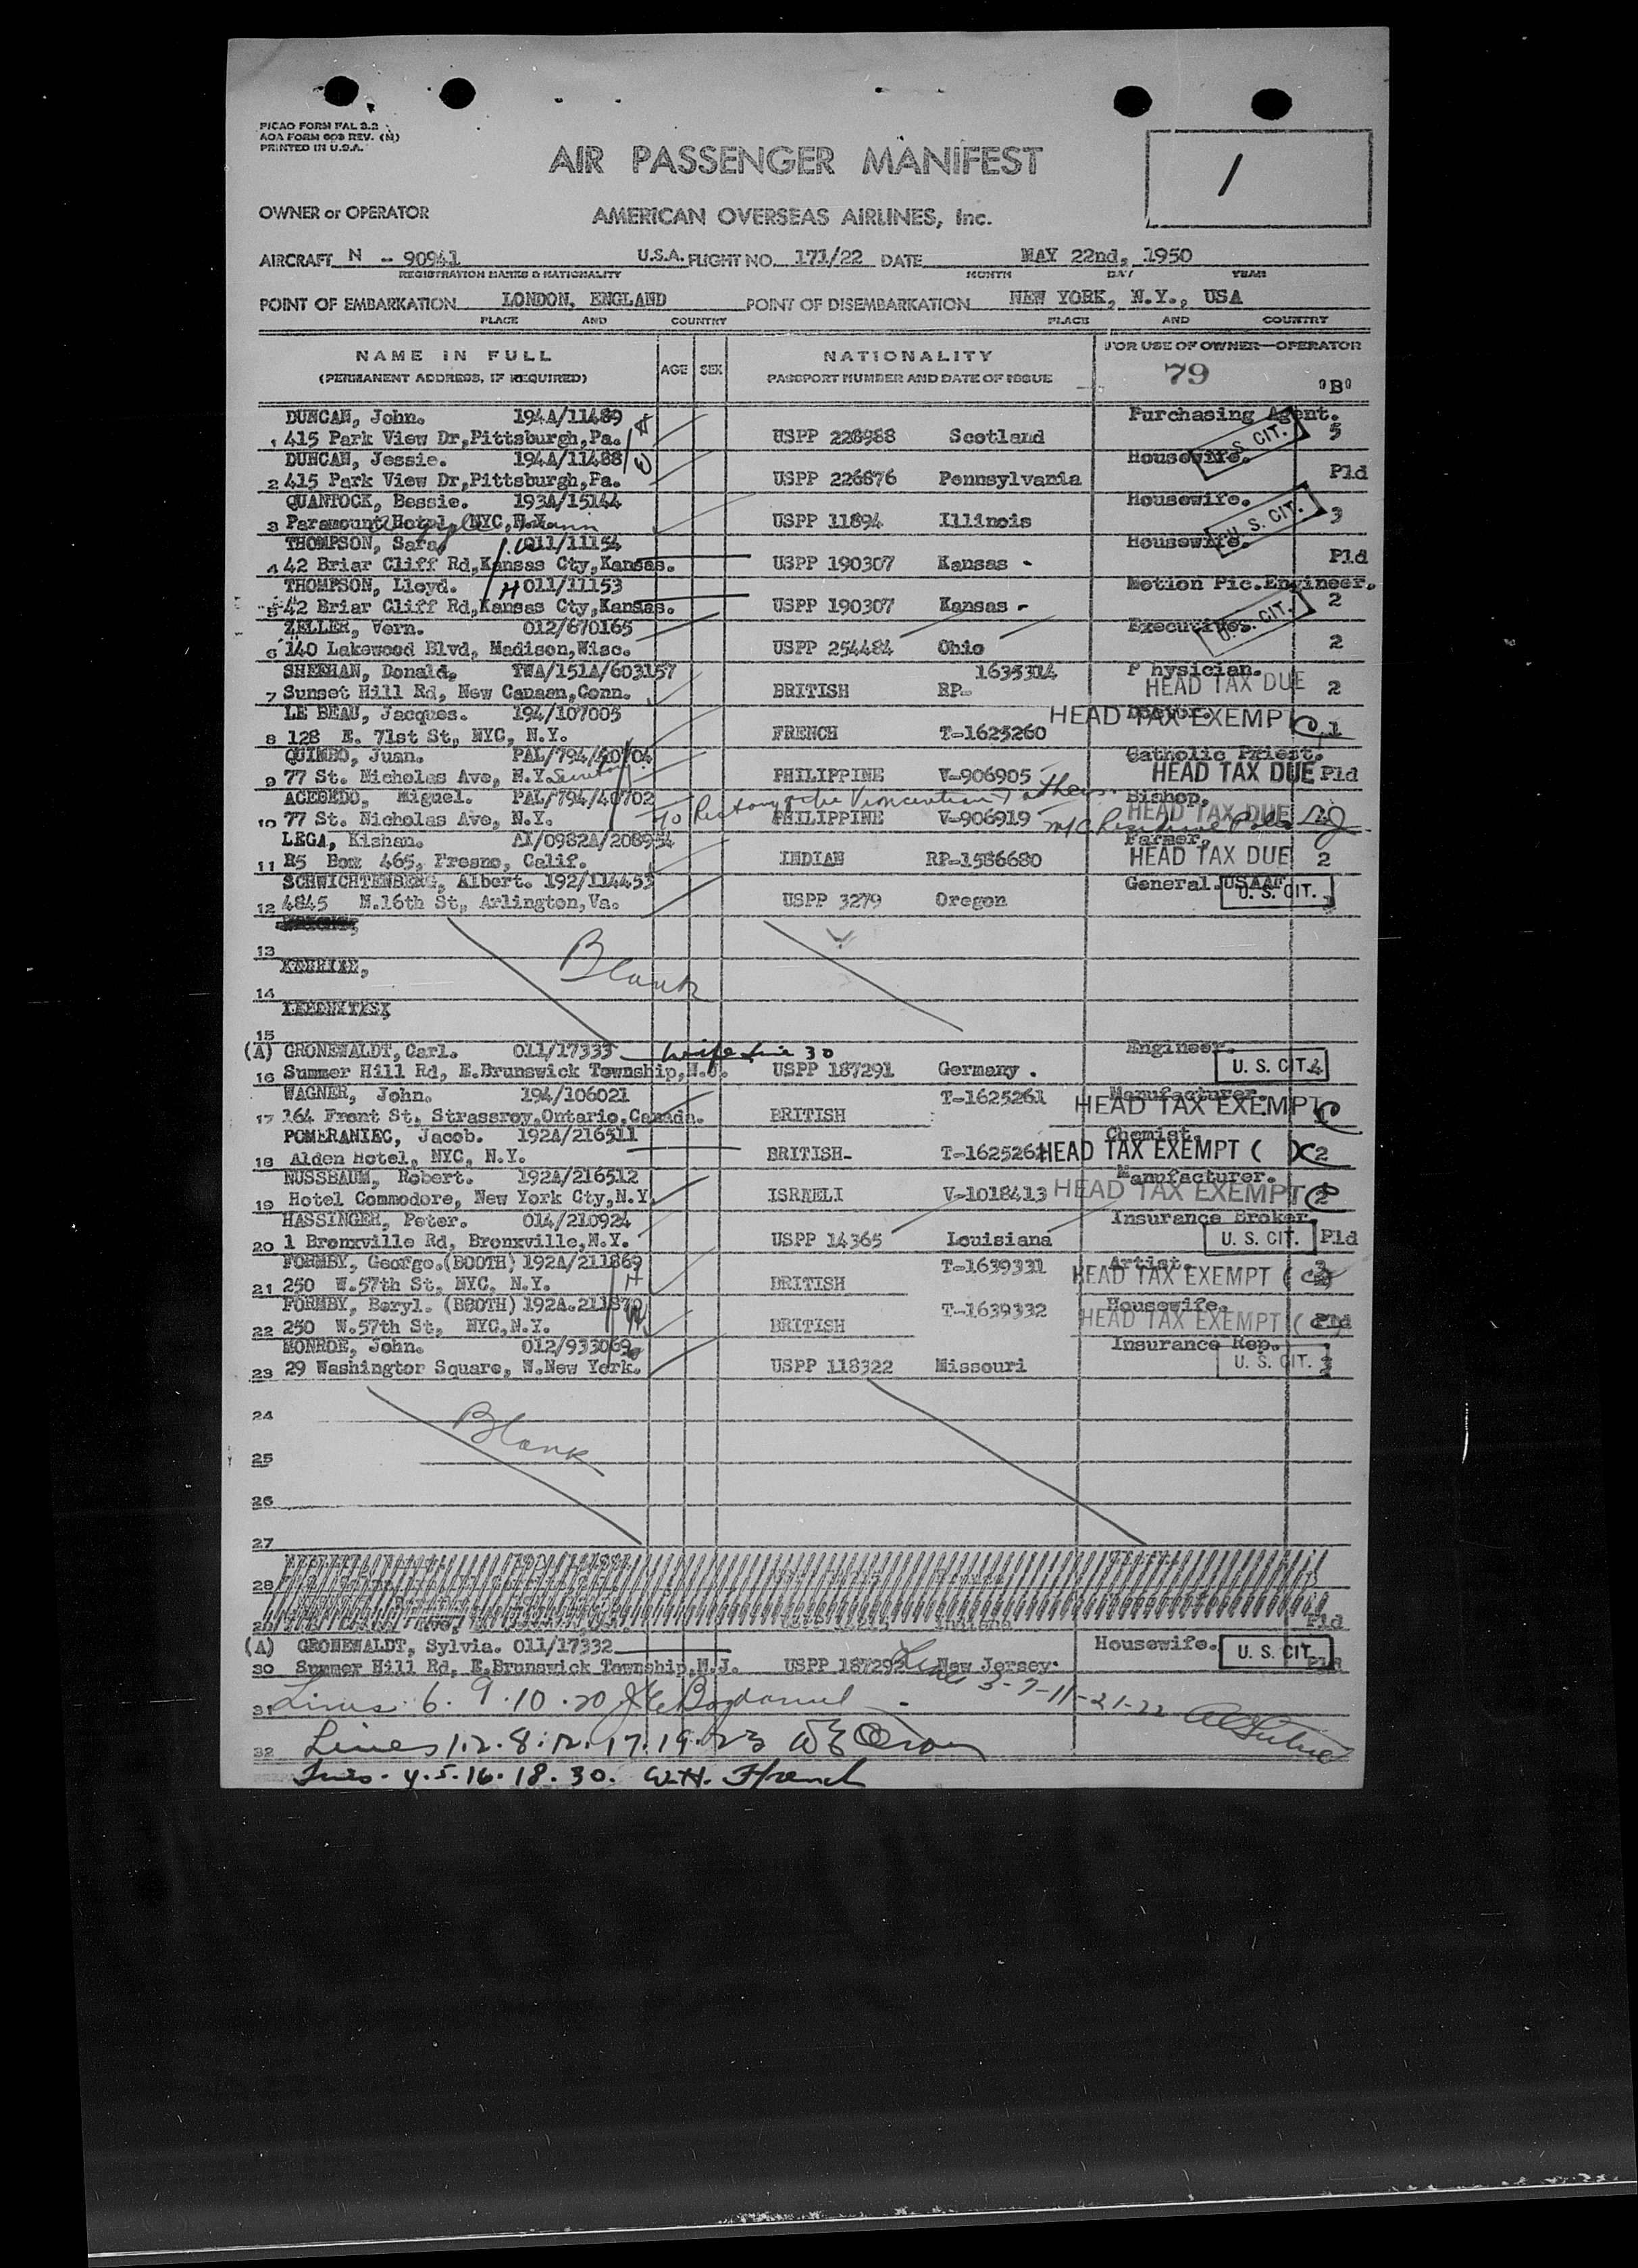 PICAO FORM FAL 2.2
AOA FORM 603 REV. (N)
PRINTED IN U.S.A.
AIR PASSENGER MANIFEST
1
OWNER or OPERATOR AMERICAN OVERSEAS AIRLINES, Inc.
AIRCRAFT N - 90941 U.S.A. FLIGHT NO. 171/22 DATE MAY 22nd, 1950
REGISTRATION MARKS & NATIONALITY MONTH DAY YEAR
POINT OF EMBARKATION LONDON, ENGLAND POINT OF DISEMBARKATION NEW YORK, N.Y., USA
PLACE AND COUNTRY PLACE AND COUNTRY
NAME IN FULL AGE SEX NATIONALITY FOR USE OF OWNER—OPERATOR
(PERMANENT ADDRESS, IF REQUIRED) PASSPORT NUMBER AND DATE OF ISSUE 79 "B"
DUNCAN, John. 194A/11489 Purchasing Agent.
1 415 Park View Dr,Pittsburgh,Pa. USPP 228988 Scotland U. S. CIT. 5
DUNCAN, Jessie. 194A/11488 Housewife.
2 415 Park View Dr,Pittsburgh,Pa. USPP 226876 Pennsylvania Pld
QUANTOCK, Bessie. 193A/15144 Housewife.
3 Paramount Hotel, NYC, USPP 11894 Illinois U. S. CIT. 3
THOMPSON, Sara. 011/11154 Housewife.
4 42 Briar Cliff Rd,Kansas Cty,Kansas. USPP 190307 Kansas - Pld
THOMPSON, Lloyd. H 011/11153 Motion Pic.Engineer.
5 42 Briar Cliff Rd,Kansas Cty,Kansas. USPP 190307 Kansas - 2
ZELLER, Vern. 012/670165 Executives. U. S. CIT.
6 140 Lakewood Blvd, Madison,Wisc. USPP 254484 Ohio 2
SHEEHAN, Donald. TWA/151A/603157 1635314 Physician.
7 Sunset Hill Rd, New Canaan,Conn. BRITISH RP- HEAD TAX DUE 2
LE BEAU, Jacques. 194/107005 HEAD TAX EXEMPT
8 128 E. 71st St, NYC, N.Y. FRENCH T-1625260 1
QUIMBO, Juan. PAL/794/40704 Catholic Priest.
9 77 St. Nicholas Ave, N.Y. PHILIPPINE V-906905 HEAD TAX DUE Pld
ACEBEDO, Miguel. PAL/794/40702 Bishop.
10 77 St. Nicholas Ave, N.Y. PHILIPPINE V-906919 HEAD TAX DUE
LEGA, Kishan. AI/0982A/208954 Farmer.
11 R5 Box 465, Fresno, Calif. INDIAN RP-1586680 HEAD TAX DUE 2
SCHWICHTENBERG, Albert. 192/114453 General.USAAF
12 4845 N.16th St, Arlington,Va. USPP 3279 Oregon U. S. CIT. 3
13
14
Blank
15
(A) GRONEWALDT,Carl. 011/17333 wife line 30 Engineer.
16 Summer Hill Rd, E.Brunswick Township,N.J. USPP 187291 Germany . U. S. CIT. 4
WAGNER, John. 194/106021 T-1625261 Manufacturer.
17 164 Front St, Strassroy,Ontario,Canada. BRITISH HEAD TAX EXEMPT
POMERANIEC, Jacob. 192A/216511 Chemist.
18 Alden Hotel, NYC, N.Y. BRITISH- HEAD TAX EXEMPT ( ) 2
NUSSBAUM, Robert. 192A/216512 Manufacturer.
19 Hotel Commodore, New York Cty,N.Y. ISRAELI V-1018413 HEAD TAX EXEMPT
HASSINGER, Peter. 014/210924 Insurance Broker.
20 1 Bronxville Rd, Bronxville,N.Y. USPP 14365 Louisiana U. S. CIT. Pld
FORMBY, George.(BOOTH) 192A/211869 T-1639331 Artist.
21 250 W.57th St, NYC, N.Y. BRITISH HEAD TAX EXEMPT
FORMBY, Beryl. (BOOTH) 192A.211870 T-1639332 Housewife.
22 250 W.57th St, NYC,N.Y. BRITISH HEAD TAX EXEMPT Pld
MONROE, John. 012/933069 Insurance Rep.
23 29 Washingtor Square, W.New York. USPP 118322 Missouri U. S. CIT. 3
24
Blank
25
26
27
28
29 Pld
(A) GRONEWALDT, Sylvia. 011/17332 Housewife. U. S. CIT.
30 Summer Hill Rd, E.Brunswick Township,N.J. USPP 187292 New Jersey.
Lines 3-7-11-21-22
31 Lines 6. 9. 10. 20
32 Lines 1.2.8.12.17.19.23
Lines. 4.5.16.18.30. W.H. French